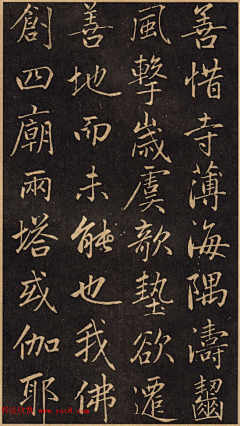 善惜寺薄海隅濤齧
風擊歲虞欹墊欲遷
善地而未能也我佛
創四廟兩塔或伽耶
www.yac8.com